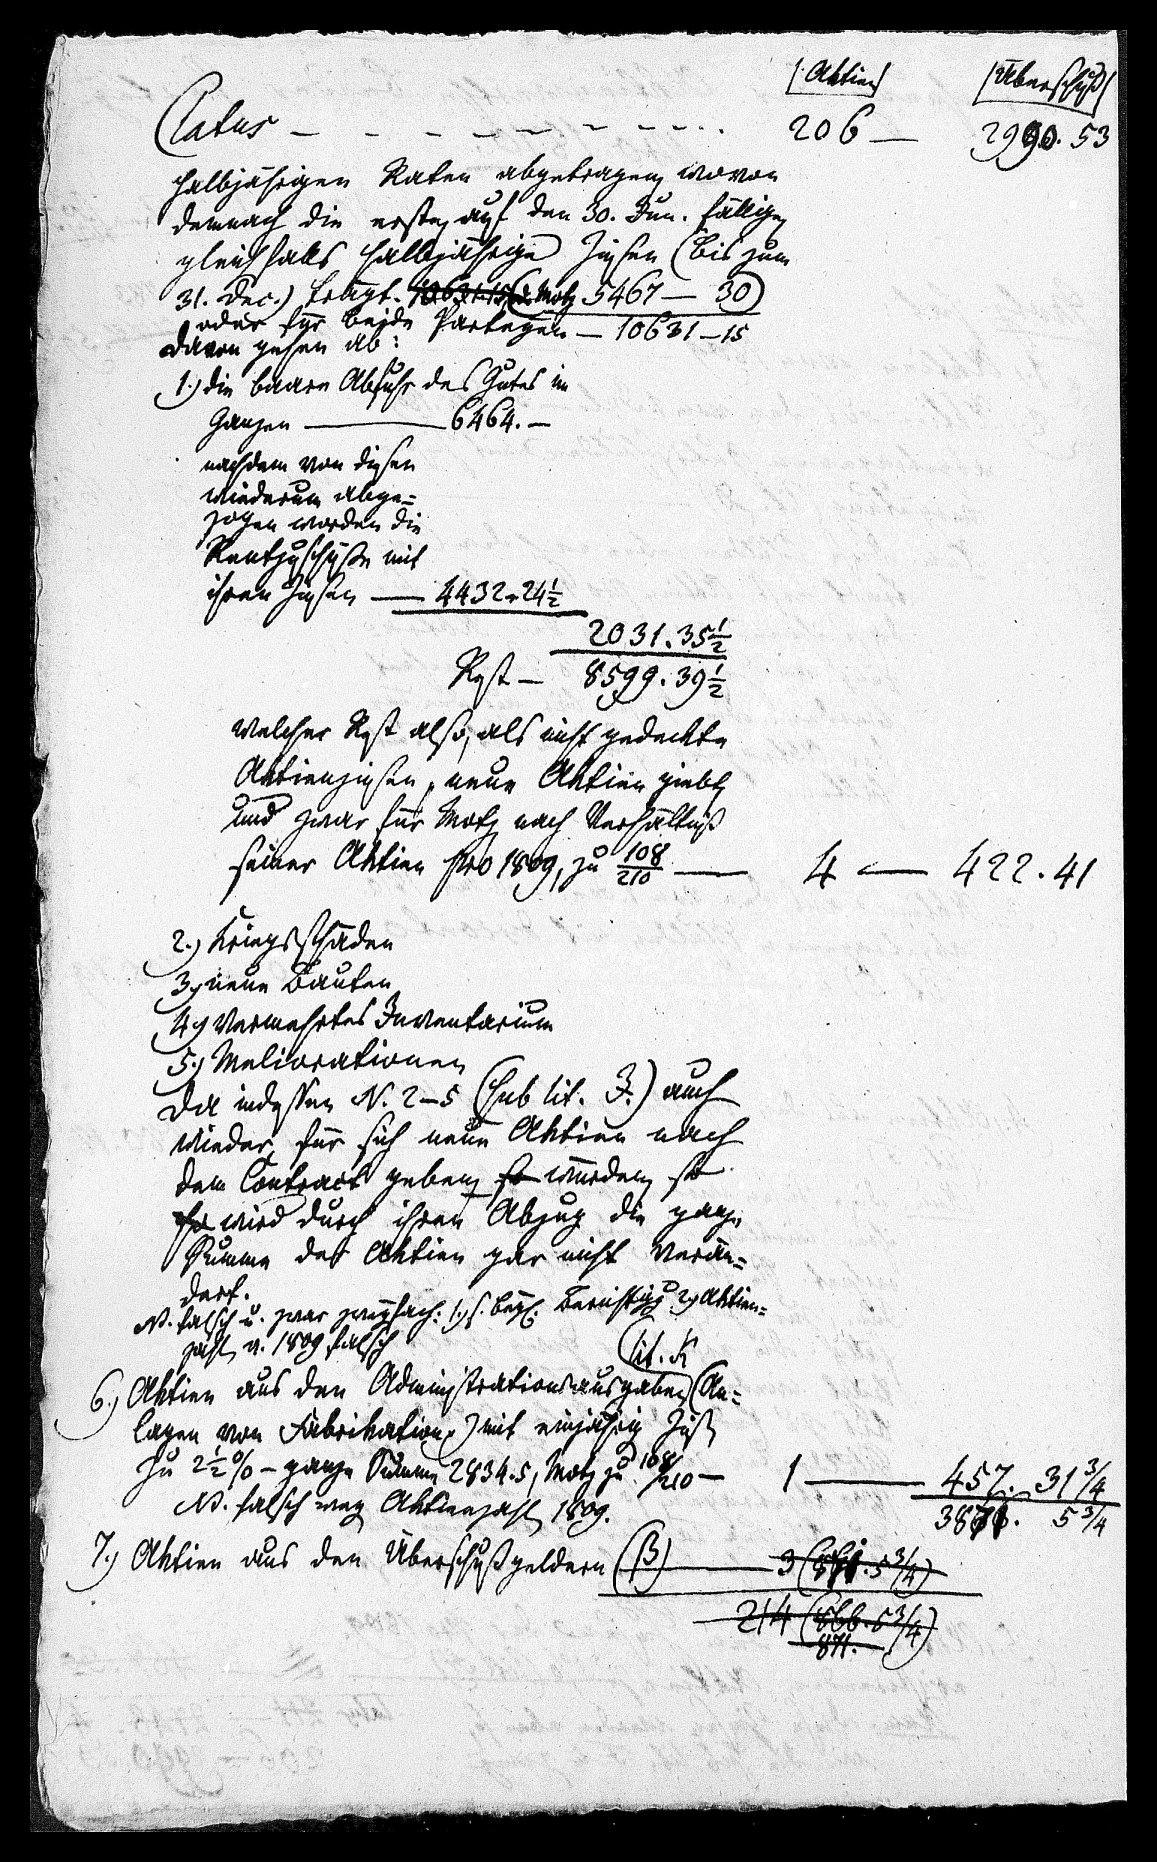 Aktien Überschuß
Latus — — — — — — — — 206 — 2990. 53
halbjährigen Raten abgetragen, wovon
demnach die erste, auf den 30. Jun. fällige,
gleichfalls halbjährige Zinsen (bis zum
31. Dec.) beträgt. 10631-15 (d. Motz 5467 — 30)
oder für beide Parteyen — 10631 — 15
davon gehen ab:
1.) die baare Abfuhr des Gutes im
Ganzen ——— 6464. —
nachdem von diesen
wiederum abge=
zogen worden die
Rentzuschüße mit
ihren Zinsen — 4432. 24 1/2
2031. 35 1/2
Rest — 8599. 39 1/2
welcher Rest also, als nicht gedeckte
Aktienzinsen, neue Aktien giebt,
und zwar für Motz nach Verhältniß
seiner Aktien pro 1809, zu 108/210 — 4 — 422. 41
2.) Kriegsschäden
3.) neue Bauten
4.) Vermehrtes Inventarium
5.) Meliorationen
Da indessen N. 2-5 (sub lit. J.) auch
wieder für sich neue Aktien nach
dem Contract geben, so würden, so
so wird durch ihren Abzug die ganze
Summe der Aktien gar nicht verän=
dert.
N. falsch u. zwar zweyfach: 1.) s. Berichtigg 2.) Aktien=
zahl v. 1809 falsch
lit. K
6.) Aktien aus den Administrationsausgaben (An=
lagen von Fabrikation) mit einjährig Zins
zu 2 1/2 % — ganze Summe 2834. 5, Motz zu 108/210 — 1 — 457. 31 3/4
N. falsch weg. Aktienzahl 1809. 3871. 5 3/4
7.) Aktien aus den Überschußgeldern (β) — 3 (871. 5 3/4)
214 (866. 5 3/4)
871.